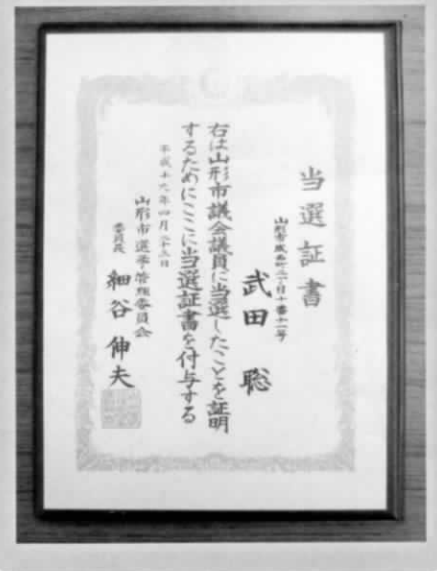 当選証書
山形市成西町二丁目十番十一号
武田 聡
右は山形市議会議員に当選したことを証明
するためにここに当選証書を付与する
平成十九年四月二十三日
山形市選挙管理委員会
委員長 細谷伸夫